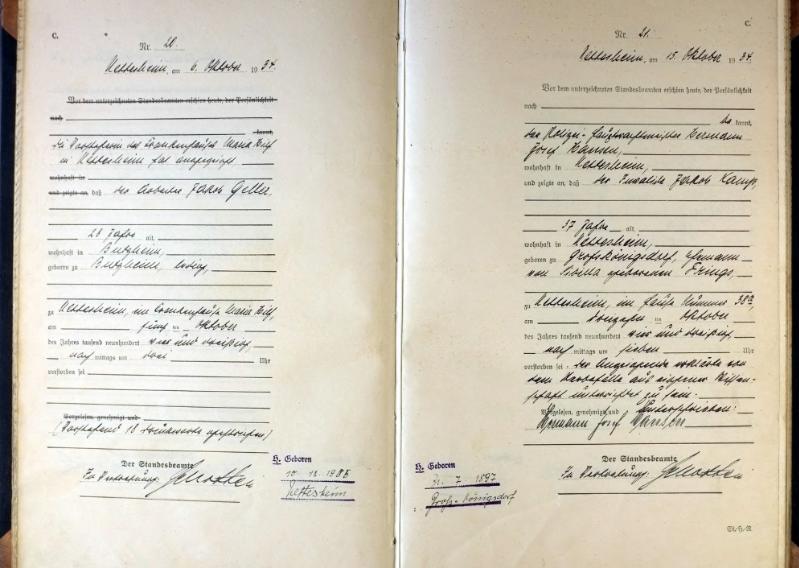 C.
Nr. 20.
Nettesheim, am 6. Oktober 1934.
Vor dem unterzeichneten Standesbeamten erschien heute, der Persönlichkeit
nach
kannt,
die Vorsteherin des Krankenhauses Maria Hilf
in Nettesheim hat angezeigt
wohnhaft in
und zeigte an, daß der Arbeiter Jakob Geller,
28 Jahre alt,
wohnhaft in Butzheim,
geboren zu Butzheim, ledig,
zu Nettesheim, im Krankenhause Maria Hilf
am fünften Oktober
des Jahres tausend neunhundert vier und dreißig,
nachmittags um drei Uhr
verstorben sei
Vorgelesen, genehmigt und
(Vorstehend 18 Druckworte gestrichen)
Der Standesbeamte
In Vertretung:
H. Geboren
Nettesheim
C.
Nr. 21.
Nettesheim, am 15. Oktober 1934.
Vor dem unterzeichneten Standesbeamten erschien heute, der Persönlichkeit
nach
bekannt,
der Polizei-Hauptwachtmeister Hermann
Josef Hansen,
wohnhaft in Nettesheim,
und zeigte an, daß der Invalide Jakob Kamp,
37 Jahre alt,
wohnhaft in Nettesheim,
geboren zu Großkönigsdorf, Ehemann
von Sibilla geborenen Frings,
zu Nettesheim, im Hause Nummer 38a,
am Oktober
des Jahres tausend neunhundert vier und dreißig,
nachmittags um sieben Uhr
verstorben sei. Der Anzeigende erklärte von
dem Sterbefalle aus eigener Wissen-
schaft unterrichtet zu sein.
Vorgelesen, genehmigt und unterschrieben.
Hermann Josef Hansen
Der Standesbeamte
In Vertretung:
H. Geboren
7. 1897
Groß-Königsdorf
St.-H.-R.